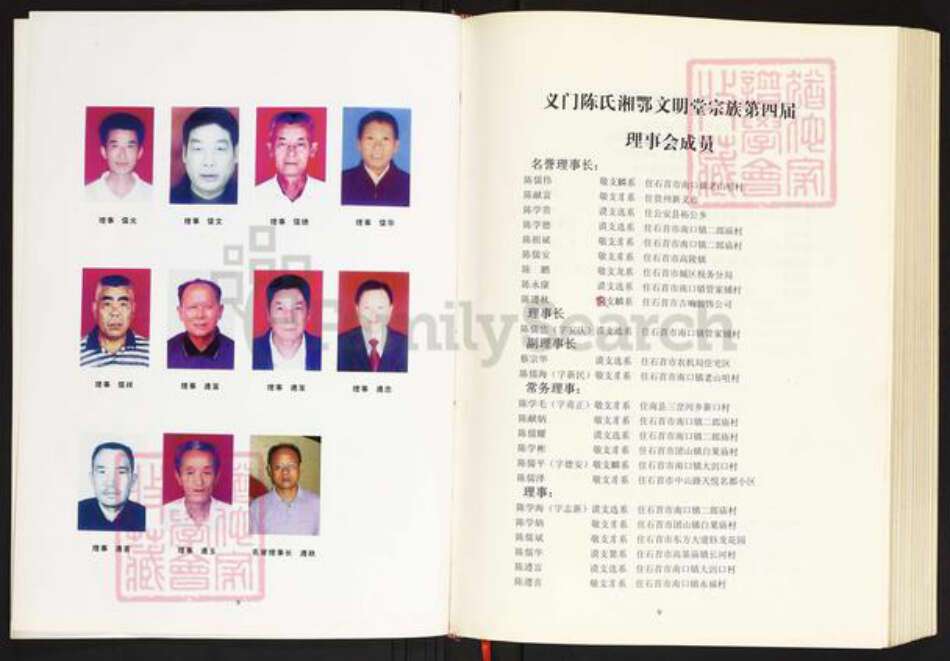 理事 儒文
理事 儒华
理事 儒祥
理事 遵富
理事 遵军
理事 遵忠
理事 遵玉
名誉理事长 遵秋
FamilySearch
义门陈氏湘鄂文明堂宗族第四届
理事会成员
名誉理事长：
陈儒伟 敬支麟系 住石首市南口镇老山咀村
陈献富 敬支彦系 住贵州新文
陈学贵 谟支选系 住公安县杨公乡
陈学德 谟支选系 住石首市南口镇二郎庙村
陈祖斌 敬支彦系 住石首市南口镇二郎庙村
陈儒安 敬支彦系 住石首市高陵镇
陈 鹏 敬支龙系 住石首市城区税务分局
陈永康 谟支选系 住石首市南口镇管家铺村
陈遵秋 支麟系 住石首市吉顺服饰公司
理事长
陈儒 （字安庆）谟支选系 住石首市南口镇管家铺村
副理事长
蔡宗华 谟支选系 住石首市农机局住宅区
陈儒海（字新民）敬支彦系 住石首市南口镇老山咀村
常务理事：
陈学毛（字甫正）敬支彦系 住南县三岔河乡新口村
陈献炳 敬支彦系 住石首市南口镇二郎庙村
陈儒耀 谟支选系 住石首市南口镇二郎庙村
陈学彬 敬支彦系 住石首市团山镇白果庙村
陈儒平（字德安）敬支麟系 住石首市南口镇大剅口村
陈儒泽 敬支彦系 住石首市中山路天悦名都小区
理事：
陈学海（字志新）谟支选系 住石首市南口镇二郎庙村
陈学炳 敬支彦系 住石首市团山镇白果庙村
陈儒斌 敬支彦系 住石首市东方大道卧龙花园
陈儒华 谟支冀系 住石首市高基庙镇长河村
陈遵富 谟支选系 住石首市南口镇大剅口村
陈遵喜 敬支彦系 住石首市南口镇永福村
9